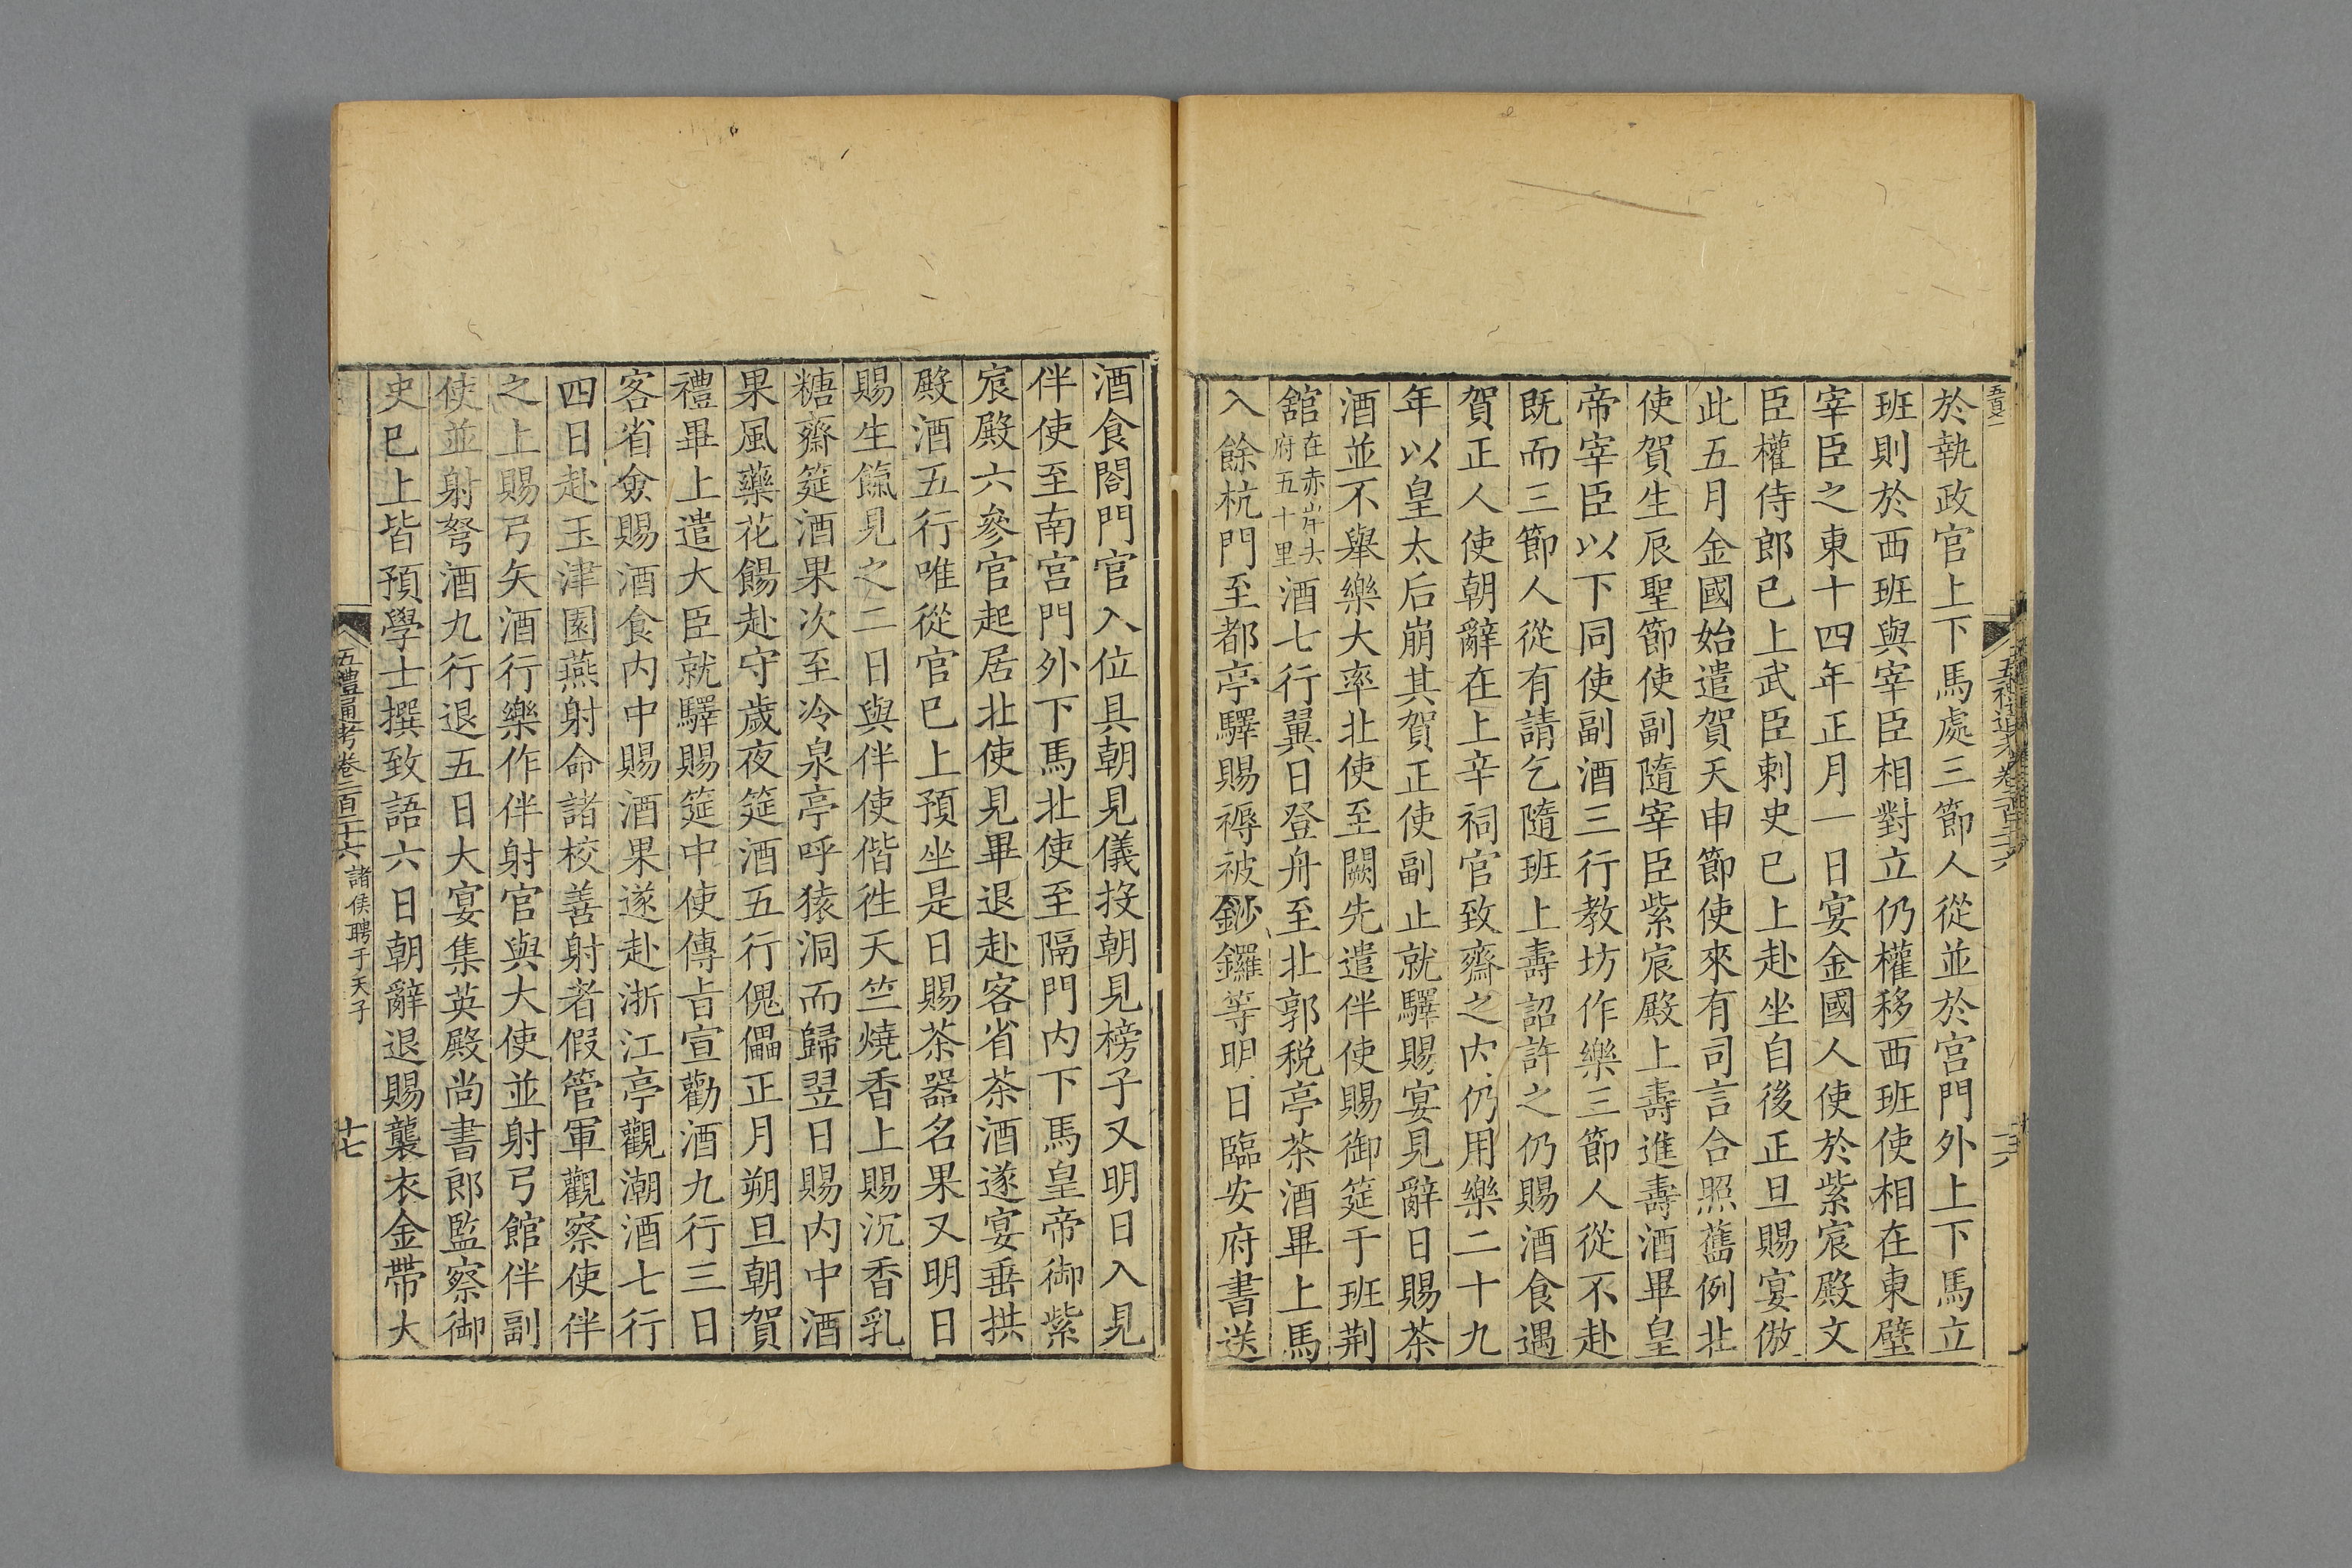 於執政官上下馬處三節人從並於宮門外上下馬立
班則於西班與宰臣相對立仍權移西班使相在東壁
宰臣之東十四年正月一日宴金國人使於紫宸殿文
臣權侍郎已上武臣刺史已上赴坐自後正旦賜宴倣
此五月金國始遣賀天申節使來有司言合照舊例北
使賀生辰聖節使副隨宰臣紫宸殿上壽進壽酒畢皇
帝宰臣以下同使副酒三行教坊作樂三節人從不赴
既而三節人從有請乞隨班上壽詔許之仍賜酒食遇
賀正人使朝辭在上辛祠官致齋之內仍用樂二十九
年以皇太后崩其賀正使副止就驛賜宴見辭日賜茶
酒並不舉樂大率北使至闕先遣伴使賜御筵于班荆
舘在赤岸头府五十里酒七行翼日登舟至北郭稅亭茶酒畢上馬
入餘杭門至都亭驛賜褥被鈔鑼等明日臨安府書送
酒食閤門官入位具朝見儀投朝見榜子又明日入見
伴使至南宮門外下馬北使至隔門內下馬皇帝御紫
宸殿六參官起居北使見畢退赴客省茶酒遂宴垂拱
殿酒五行唯從官已上預坐是日賜茶器名果又明日
賜生餼見之二日與伴使偕徃天竺燒香上賜沉香乳
糖齋筵酒果次至冷泉亭呼猿洞而歸翌日賜內中酒
果風藥花餳赴守歲夜筵酒五行傀儡正月朔旦朝賀
禮畢上遣大臣就驛賜筵中使傳旨宣勸酒九行三日
客省僉賜酒食內中賜酒果遂赴浙江亭觀潮酒七行
四日赴玉津園燕射命諸校善射者假管軍觀察使伴
之上賜弓矢酒行樂作伴射官與大使並射弓館伴副
使並射弩酒九行退五日大宴集英殿尚書郎監察御
史已上皆預學士撰致語六日朝辭退賜襲衣金帶大
五禮通考卷二百二十六 諸侯聘于天子 十七